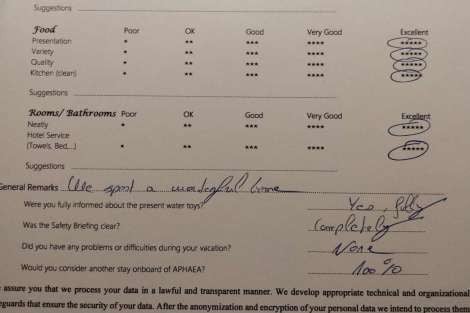 Suggestions
Food Poor OK Good Very Good Excellent
Presentation * ** *** **** *****
Variety * ** *** **** *****
Quality * ** *** **** *****
Kitchen (clean) * ** *** **** *****
Suggestions
Rooms/ Bathrooms Poor OK Good Very Good Excellent
Neatly * ** *** **** *****
Hotel Service
(Towels, Bed,...) * ** *** **** *****
Suggestions
General Remarks We spent a wonderful time
Were you fully informed about the present water toys? Yes, fully
Was the Safety Briefing clear? Completely
Did you have any problems or difficulties during your vacation? None
Would you consider another stay onboard of APHAEA? 100%
assure you that we process your data in a lawful and transparent manner. We develop appropriate technical and organizational
eguards that ensure the security of your data. After the anonymization and encryption of your personal data we intend to process them